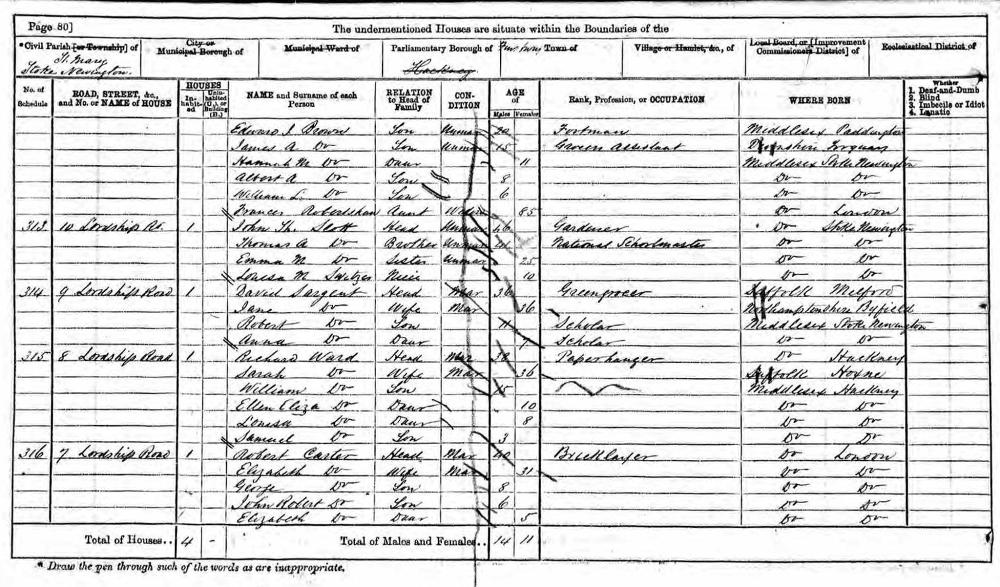 Page 80]
The undermentioned Houses are situate within the Boundaries of the
*Civil Parish [or Township] of
St. Mary
Stoke Newington.
City or
Municipal Borough of
Municipal Ward of
Parliamentary Borough of
Finsbury
Hackney
Town of
Village or Hamlet, &c., of
Local Board, or [Improvement
Commissioners District] of
Ecclesiastical District of
No. of Schedule
ROAD, STREET, &c., and No. or NAME of HOUSE
HOUSES
Inhabited
Uninhabited (U.), or Building (B.)
NAME and Surname of each Person
RELATION to Head of Family
CONDITION
AGE of
Males Females
Rank, Profession, or OCCUPATION
WHERE BORN
Whether
1. Deaf-and-Dumb
2. Blind
3. Imbecile or Idiot
4. Lunatic
Edward J. Brown Son Unmar 20 Footman Middlesex Paddington
James A. Do Son Unmar 15 Grocers Assistant Devonshire Torquay
Hannah M. Do Daur 11 Middlesex Stoke Newington
Albert A. Do Son 8 Do Do
William L. Do Son 6 Do Do
Frances Robertshaw Aunt Widow 85 Do London
313 10 Lordship Rd. 1 John Th. Scott Head Unmar 46 Gardener Do Stoke Newington
Thomas A. Do Brother Unmar National Schoolmaster Do Do
Emma M. Do Sister Unmar 25 Do Do
Louisa M. Switzer Niece 10 Do Do
314 9 Lordship Road 1 David Sargent Head Mar 36 Greengrocer Suffolk Melford
Jane Do Wife Mar 36 Northamptonshire Byfield
Robert Do Son 11 Scholar Middlesex Stoke Newington
Anna Do Daur 7 Scholar Do Do
315 8 Lordship Road 1 Richard Ward Head Mar 38 Paperhanger Do Hackney
Sarah Do Wife Mar 36 Suffolk Hoxne
William Do Son 15 Middlesex Hackney
Ellen Eliza Do Daur 10 Do Do
Louisa Do Daur 8 Do Do
Samuel Do Son 3 Do Do
316 7 Lordship Road 1 Robert Carter Head Mar 40 Bricklayer Do London
Elizabeth Do Wife Mar 31 Do Do
George Do Son 8 Do Do
John Robert Do Son 6 Do Do
Elizabeth Do Daur 5 Do Do
Total of Houses.. 4 - Total of Males and Females.. 14 11
* Draw the pen through such of the words as are inappropriate.